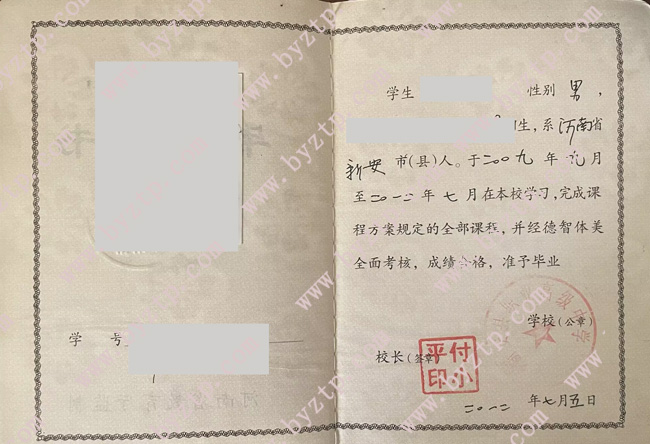 学号
学生 性别 男，
生，系 河南 省
新安 市(县)人。于 二00九 年 九 月
至 二〇一二 年 七 月在本校学习，完成课
程方案规定的全部课程，并经德智体美
全面考核，成绩合格，准予毕业
学校(公章)
校长(签章)
平付
印小
二〇一二 年 七 月 五 日
www.byztp.com